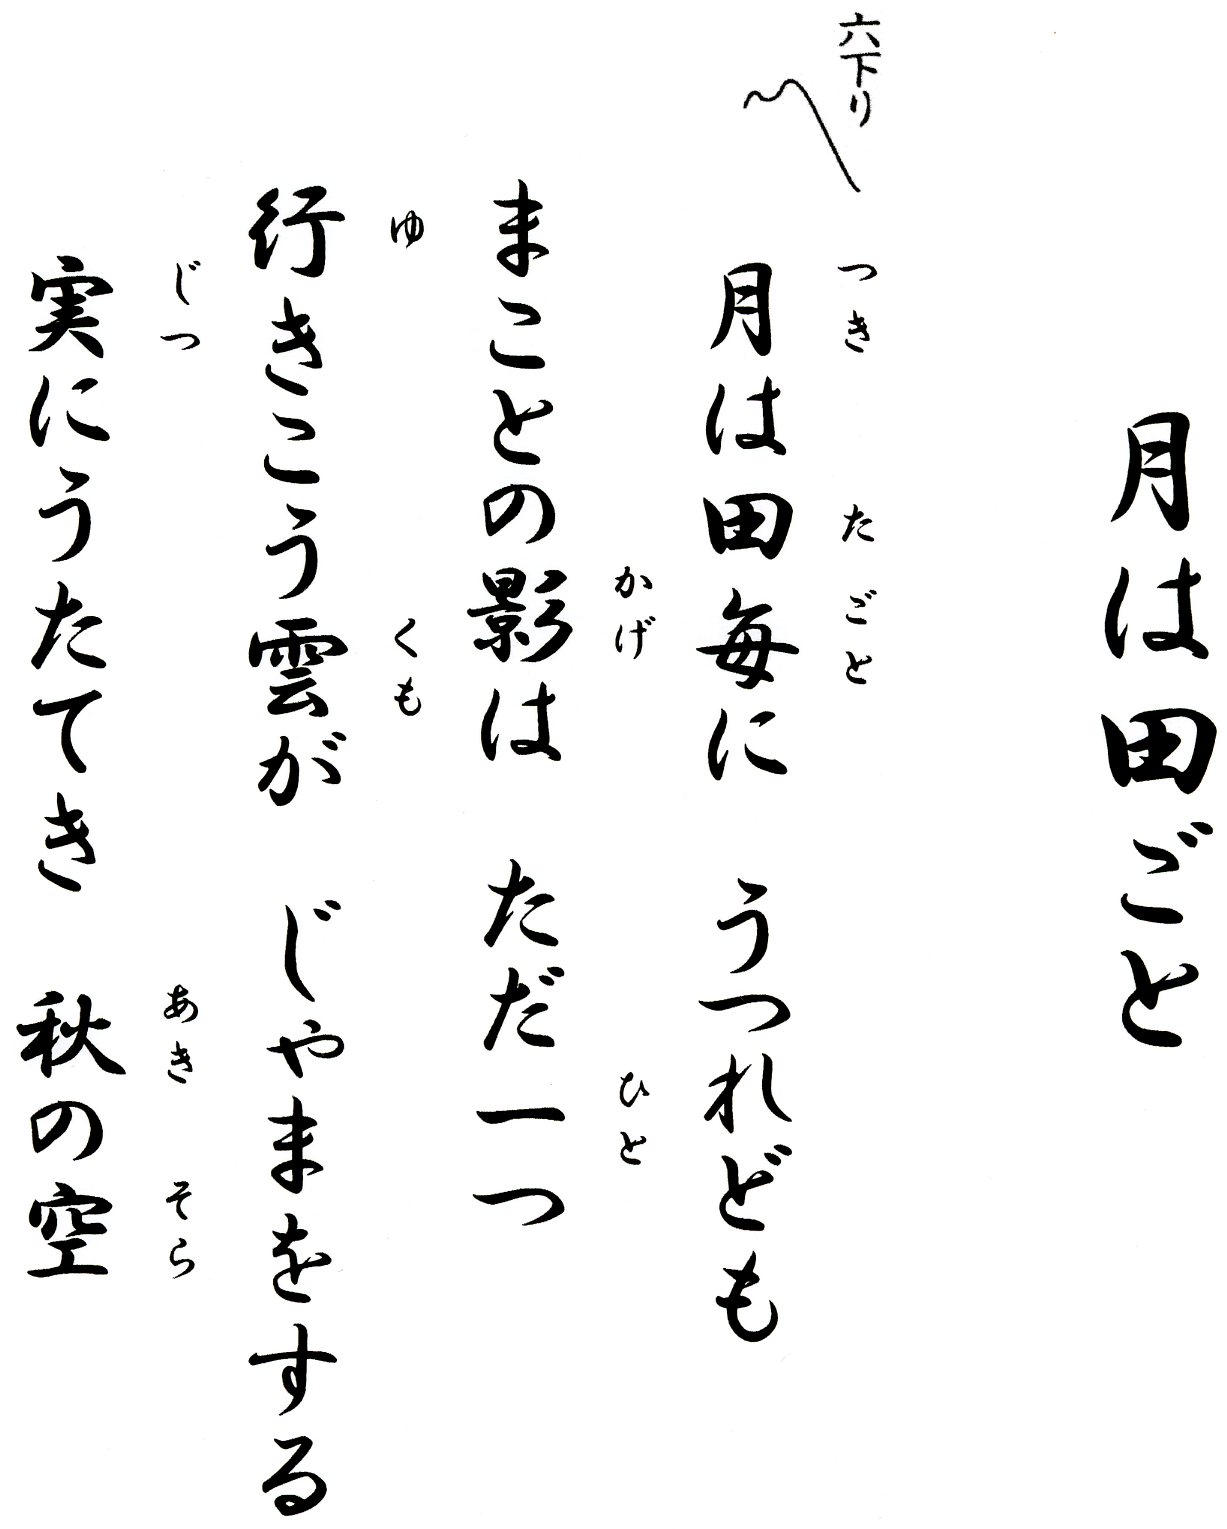 月は田ごと
六下り
月は田毎に　うつれども
つき　たごと
まことの影は　ただ一つ
かげ　ひと
行きこう雲が　じゃまをする
ゆ　くも
実にうたてき　秋の空
じつ　あき　そら